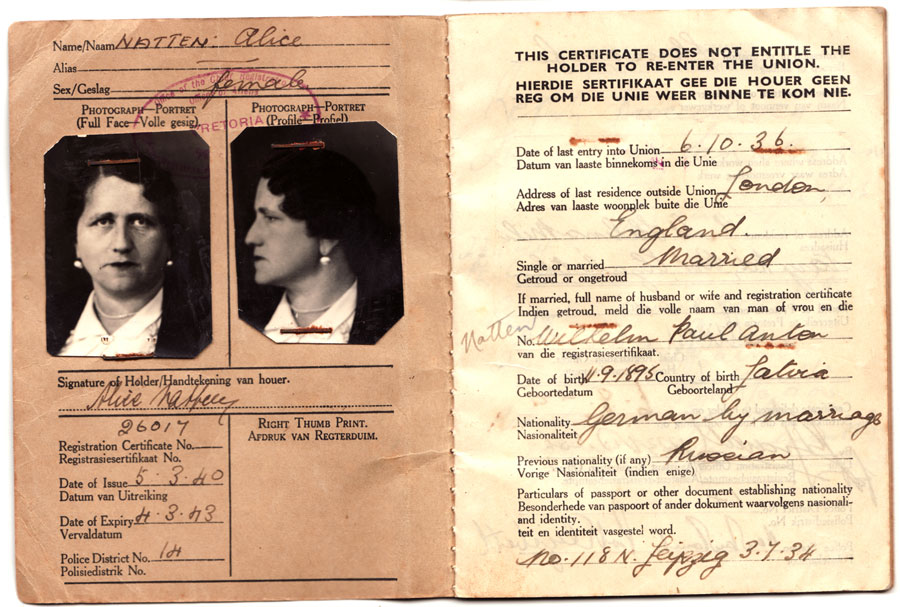 Name/Naam NATTEN Alice
Alias
Sex/Geslag female
PRETORIA
PHOTOGRAPH—PORTRET
(Full Face—Volle gesig)
PHOTOGRAPH—PORTRET
(Profile—Profiel)
Signature of Holder/Handtekening van houer.
Alice Natten
26017
Registration Certificate No.
Registrasiesertifikaat No.
Date of Issue 5·3·40
Datum van Uitreiking
Date of Expiry 4·3·43
Vervaldatum
Police District No. 14
Polisiedistrik No.
RIGHT THUMB PRINT.
AFDRUK VAN REGTERDUIM.
THIS CERTIFICATE DOES NOT ENTITLE THE
HOLDER TO RE-ENTER THE UNION.
HIERDIE SERTIFIKAAT GEE DIE HOUER GEEN
REG OM DIE UNIE WEER BINNE TE KOM NIE.
Date of last entry into Union 6·10·36.
Datum van laaste binnekoms in die Unie
Address of last residence outside Union London,
Adres van laaste woonplek buite die Unie
England.
Single or married Married
Getroud or ongetroud
If married, full name of husband or wife and registration certificate
Indien getroud, meld die volle naam van man of vrou en die
Natten
No. Wilhelm Paul Anton
van die registrasiesertifikaat.
Date of birth 11·9·1895 Country of birth Latvia
Geboortedatum Geboorteland
Nationality German by marriage
Nasionaliteit
Previous nationality (if any) Russian
Vorige Nasionaliteit (indien enige)
Particulars of passport or other document establishing nationality
Besonderhede van paspoort of ander dokument waarvolgens nasionali-
and identity.
teit en identiteit vasgestel word.
No. 118 N. Leipzig 3·7·34